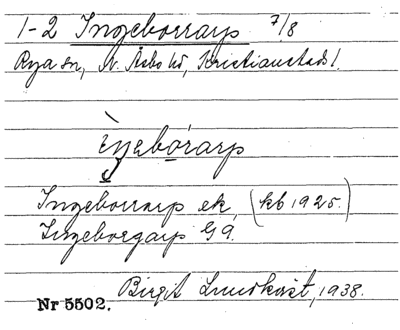 1-2 Ingeborrarp 7/8
Rya sn, N. Åsbo hd, Kristianstads l.
Ingeborrarp ek. (kb 1925.)
Ingeborgarp G9.
Birgit Lundkvist, 1938.
Nr 5502.